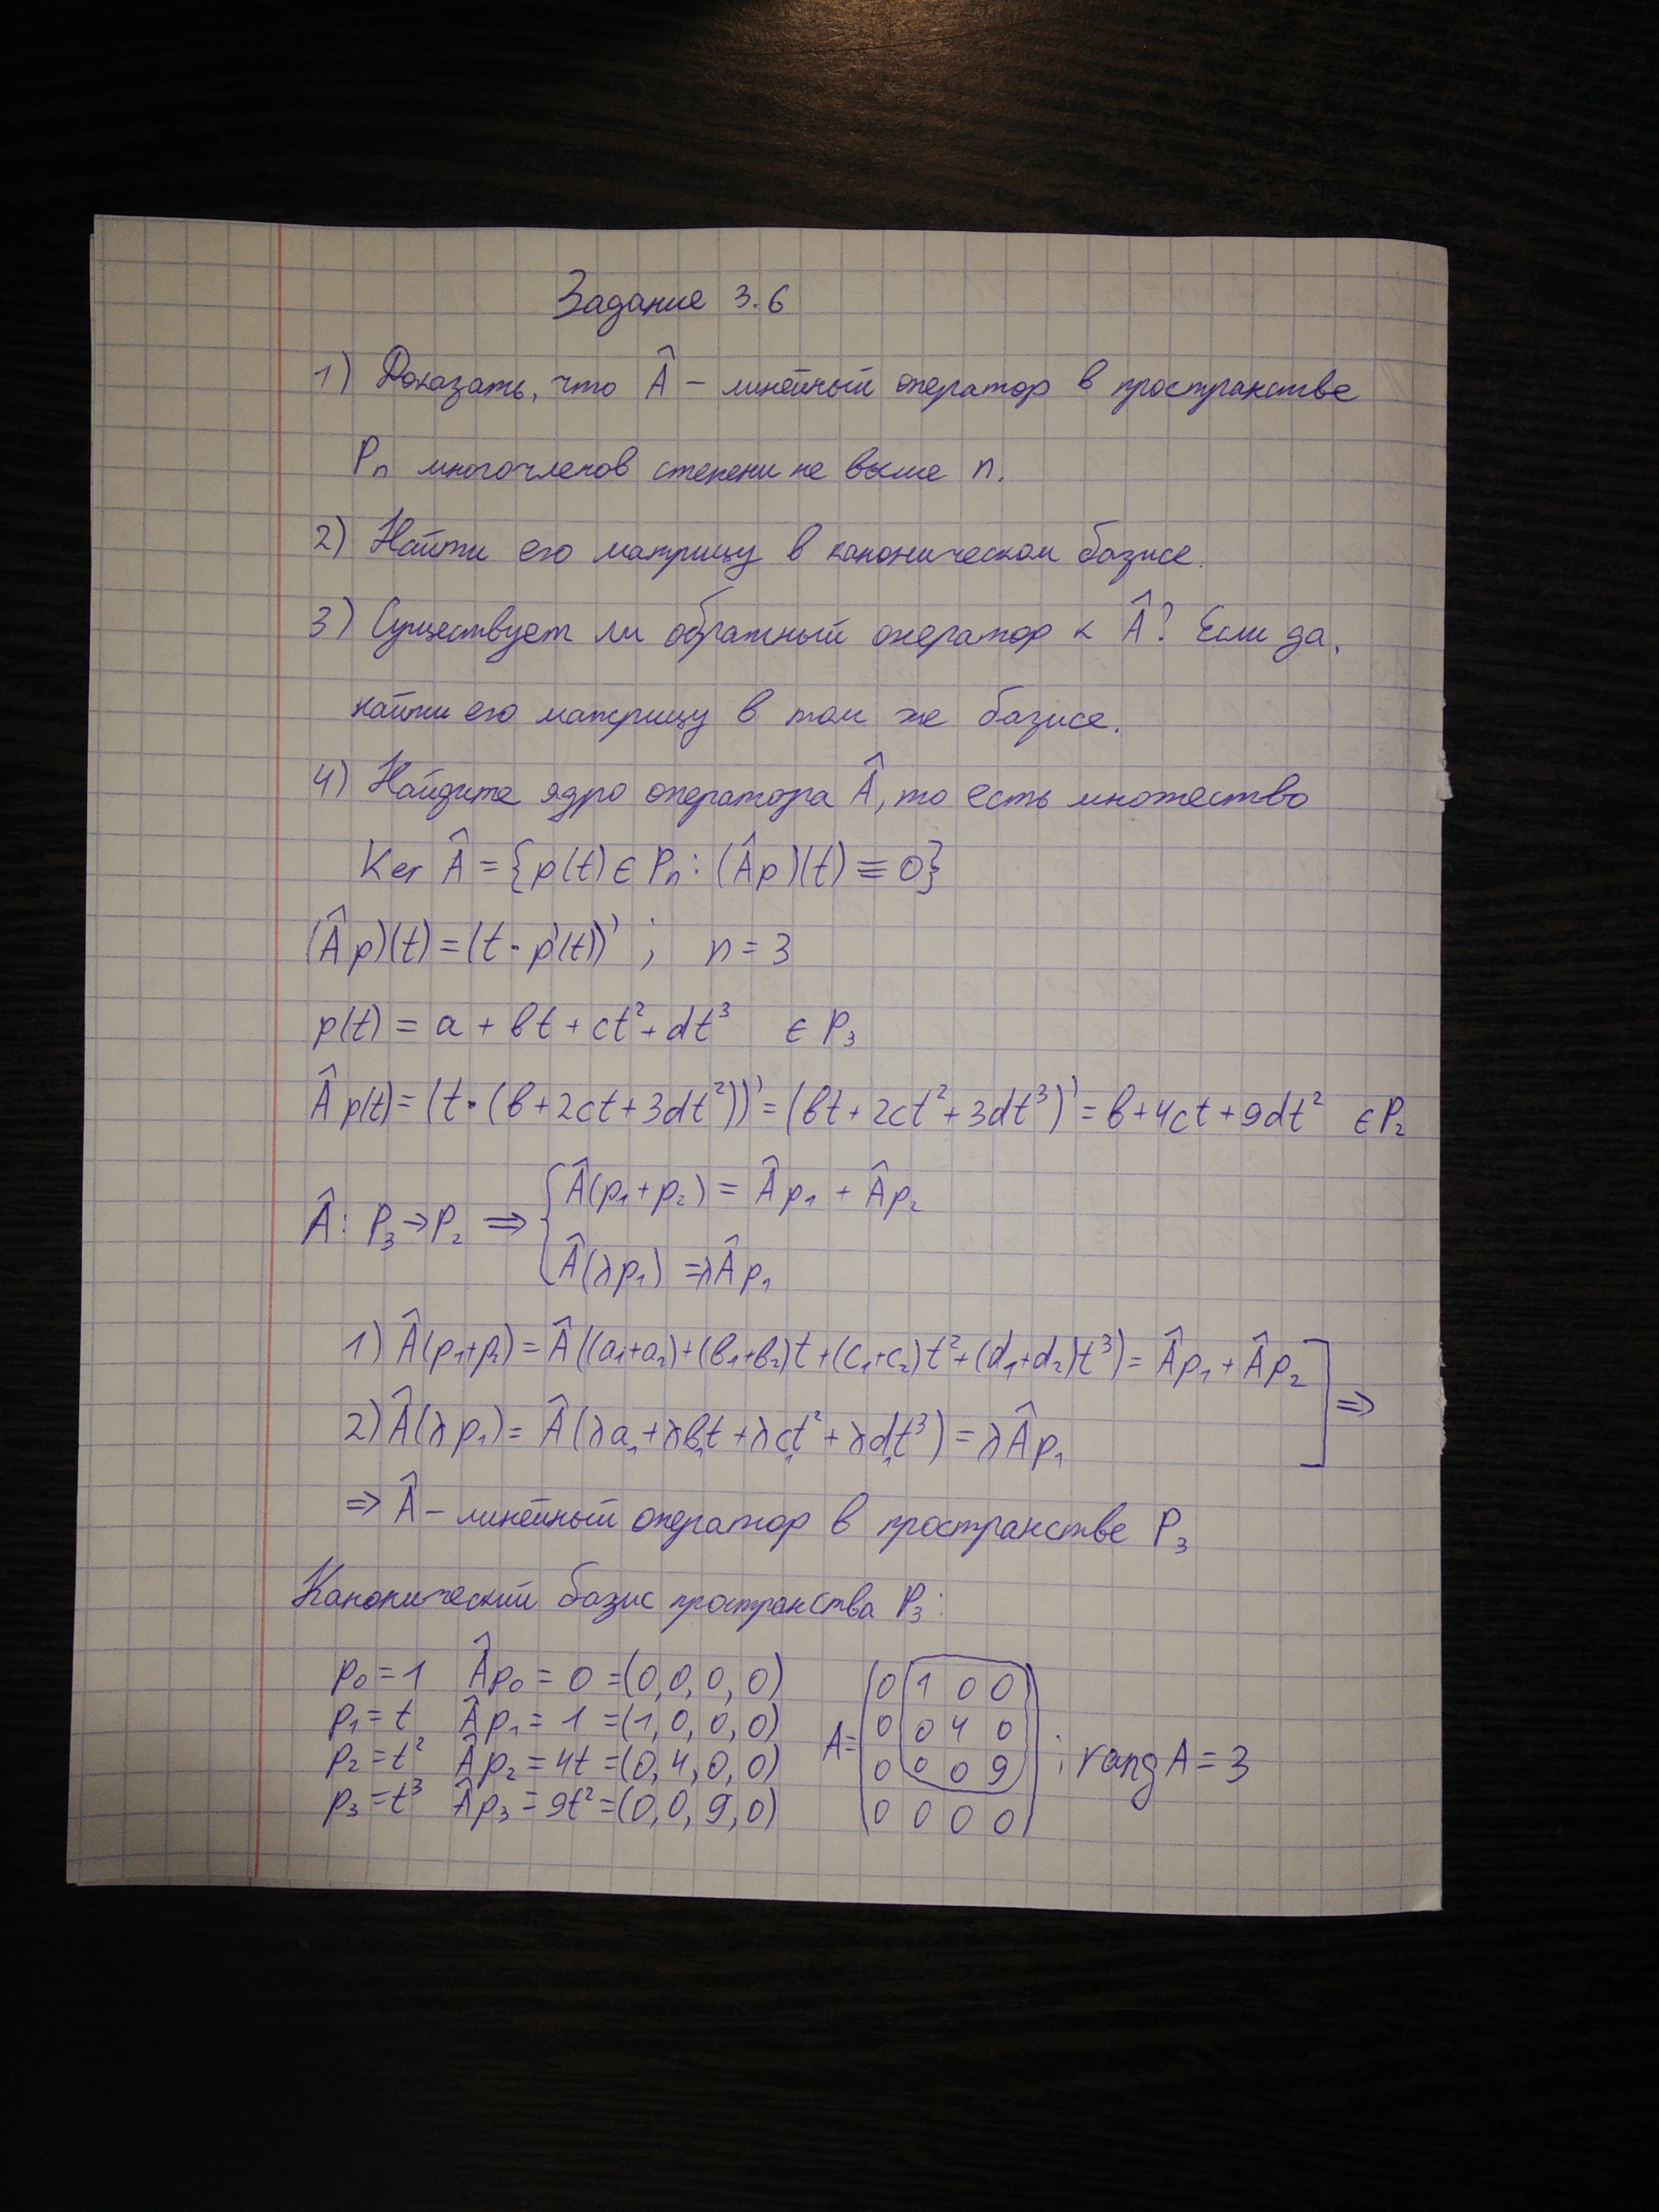 Задание 3.6
1) Доказать, что Â – линейный оператор в пространстве
Pₙ многочленов степени не выше n.
2) Найти его матрицу в каноническом базисе.
3) Существует ли обратный оператор к Â? Если да,
найти его матрицу в том же базисе.
4) Найдите ядро оператора Â, то есть множество
Ker Â = {p(t) ∈ Pₙ : (Âp)(t) ≡ 0}
(Âp)(t) = (t · p'(t))' ; n = 3
p(t) = a + bt + ct² + dt³ ∈ P₃
Âp(t) = (t · (b + 2ct + 3dt²))' = (bt + 2ct² + 3dt³)' = b + 4ct + 9dt² ∈ P₂
Â : P₃ → P₂ ⇒ { Â(p₁ + p₂) = Âp₁ + Âp₂
Â(λp₁) = λÂp₁
1) Â(p₁+p₂) = Â((a₁+a₂)+(b₁+b₂)t+(c₁+c₂)t²+(d₁+d₂)t³) = Âp₁ + Âp₂ ] ⇒
2) Â(λp₁) = Â(λa₁ + λb₁t + λc₁t² + λd₁t³) = λÂp₁
⇒ Â – линейный оператор в пространстве P₃
Канонический базис пространства P₃:
p₀ = 1 Âp₀ = 0 = (0, 0, 0, 0)
p₁ = t Âp₁ = 1 = (1, 0, 0, 0)
p₂ = t² Âp₂ = 4t = (0, 4, 0, 0)
p₃ = t³ Âp₃ = 9t² = (0, 0, 9, 0)
A =
0 1 0 0
0 0 4 0
0 0 0 9
0 0 0 0
; rang A = 3